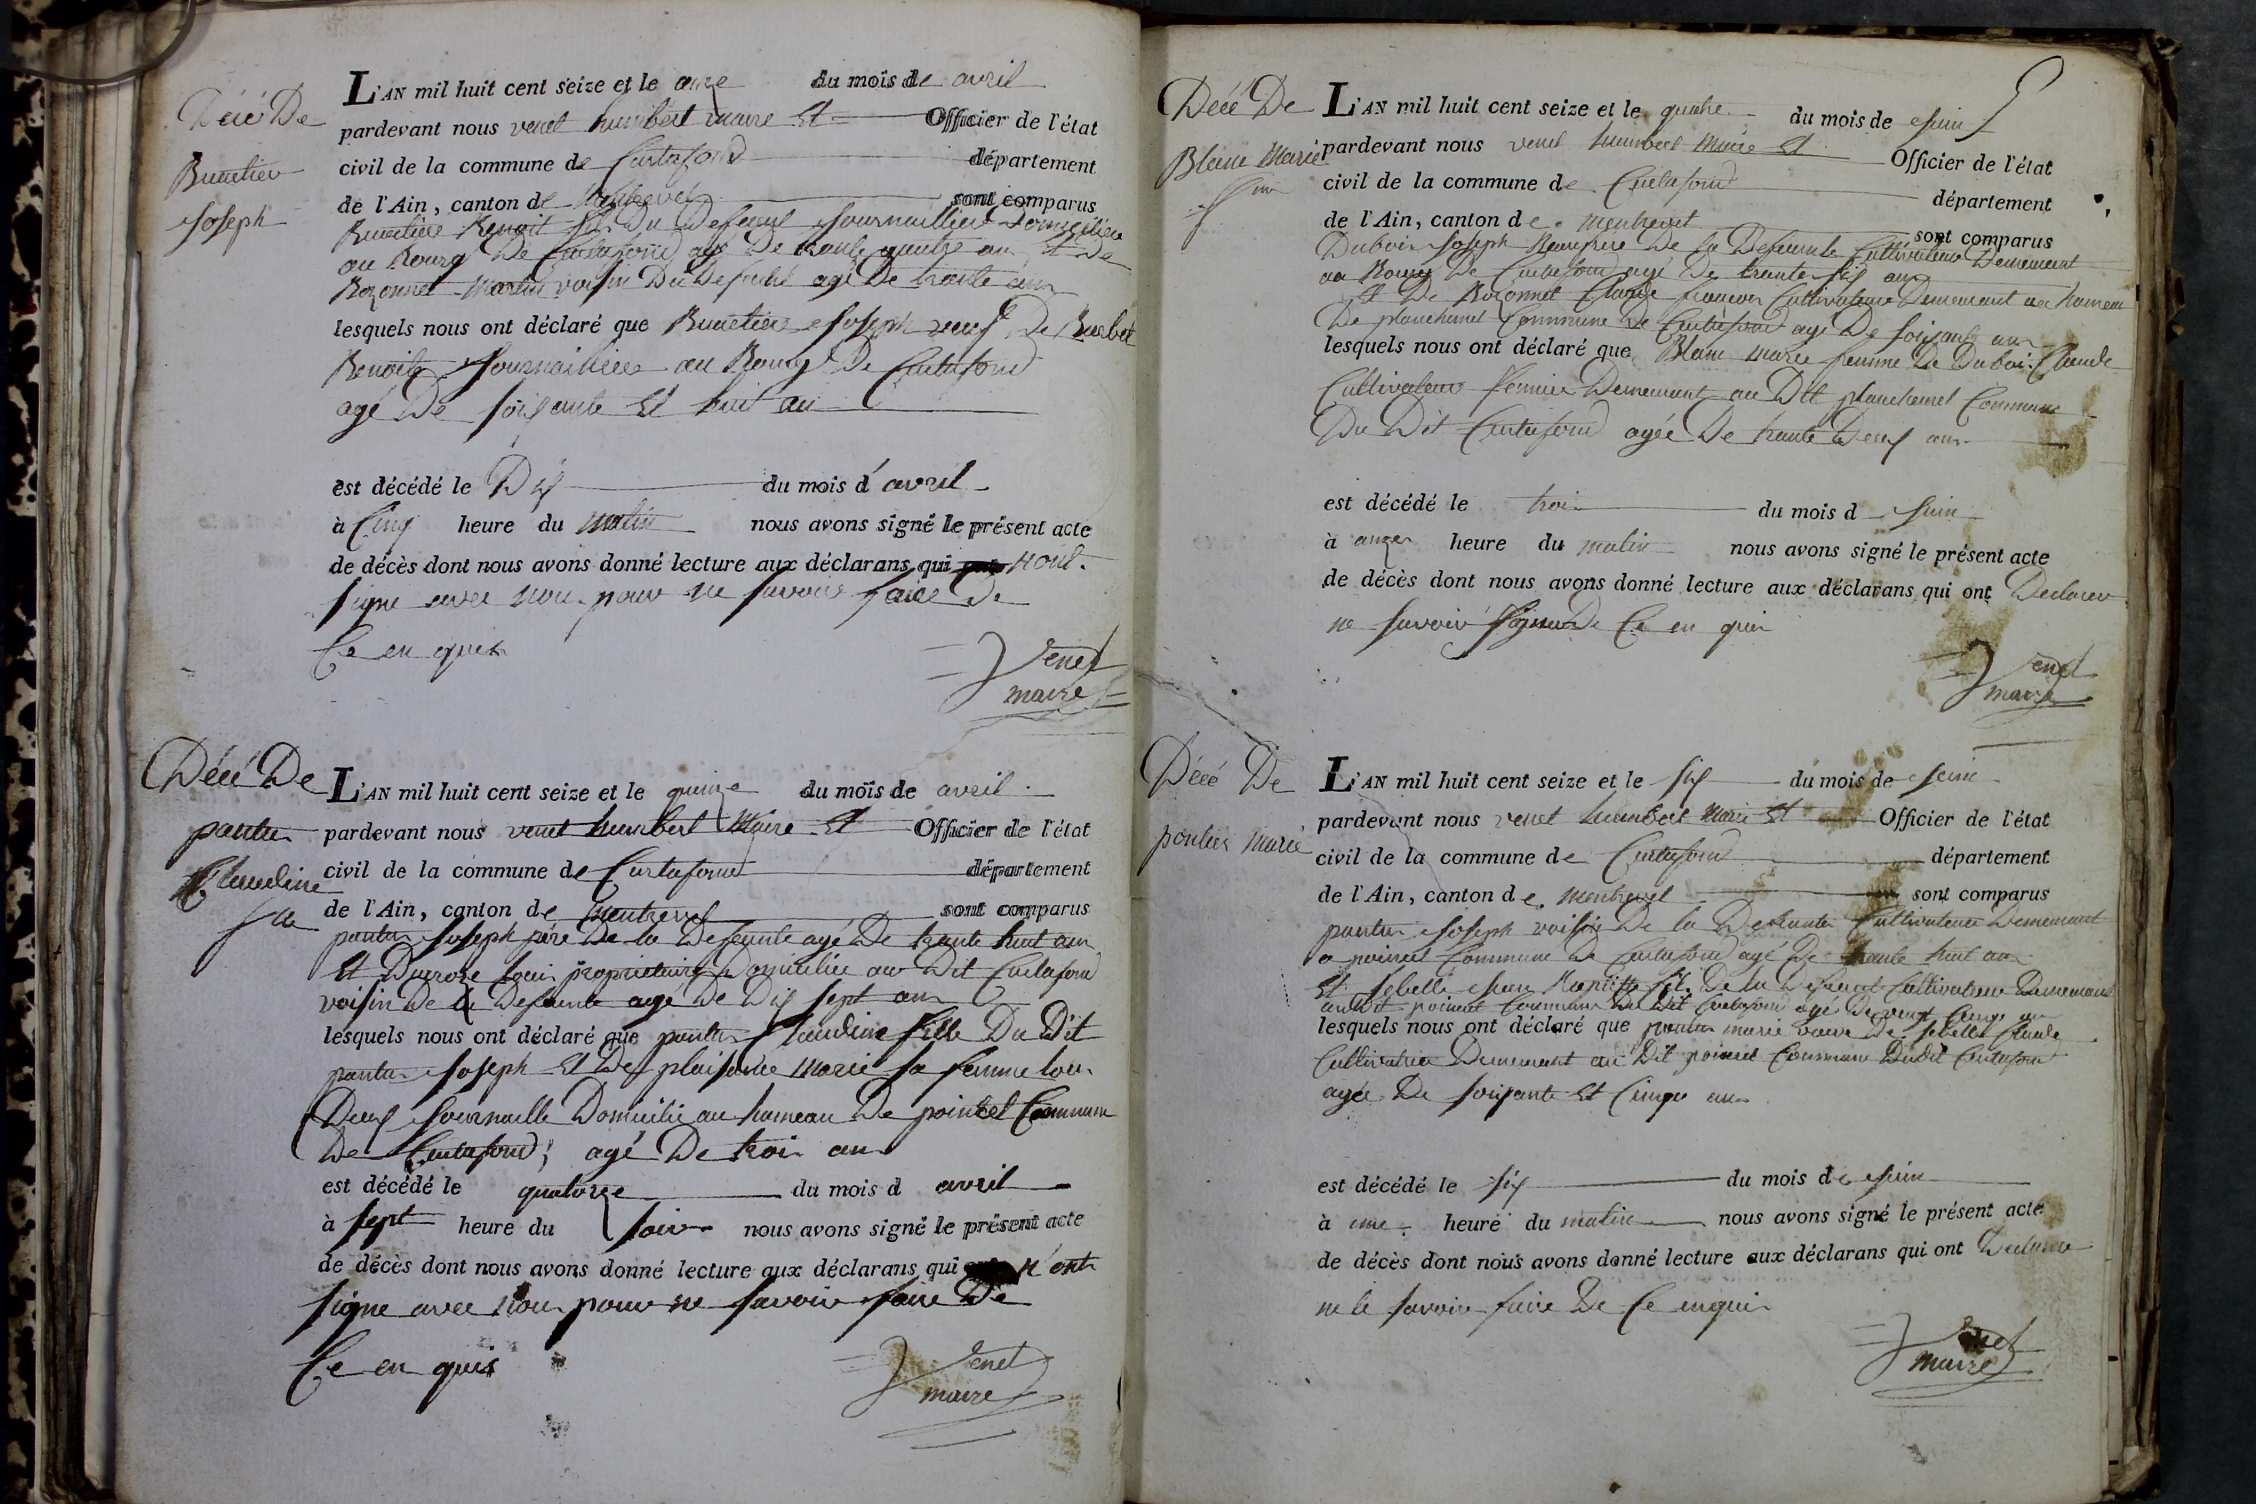 Décé De
Buattier
Joseph
L'AN mil huit cent seize et le onze du mois de avril
pardevant nous venet humbert maire Et Officier de l'état
civil de la commune de Curtafond département
de l'Ain, canton de Montrevel sont comparus
Benoit fils Du Defunt Journaillier Domicilié
au Bourg De Curtafond agé De trante quatre an Et De
Bozonnet Martin voisin Du Defunt agé De trante ans
lesquels nous ont déclaré que Joseph veuf De
Benoite Journailliere au Bourg De Curtafond
agé De soixante Et huit an
est décédé le Dix du mois d'avril
à Cinq heure du matin nous avons signé le présent acte
de décès dont nous avons donné lecture aux déclarans qui nont
signe avec nou pour ne savoir faire De
Ce en quis
Venet
maire
Décé De
pantin
Claudine
L'AN mil huit cent seize et le quinze du mois de avril
pardevant nous venet humbert Maire Et Officier de l'état
civil de la commune de Curtafond département
de l'Ain, canton de Montrevel sont comparus
Joseph pére De la Defeunte agé De trante huit ans
Et Ducroze Loui propriétaire Domicilié au Dit Curtafond
voisin De la Defeunte agé De Dix sept an
lesquels nous ont déclaré que Claudine fille Du Dit
Joseph Et De Marie sa femme tou
Deux Journaille Domicilié au hameau De Commune
De Curtafond, agé De troi an
est décédé le quatorze du mois d avril
à sept heure du soir nous avons signé le présent acte
de décès dont nous avons donné lecture aux déclarans qui n'ont
signe avec nou pour ne savoir faire De
Ce en quis
Venet
maire
Décé De
Blanc Marie
Juin
L'AN mil huit cent seize et le quatre du mois de Juin
pardevant nous venet humbert Maire Et Officier de l'état
civil de la commune de Curtafond département
de l'Ain, canton de Montrevel sont comparus
Duboi Joseph Beaufrere De la Defeunte Cultivateur Demeurant
au Bourg De Curtafond agé De trante six ans
Et De Bozonnet Claude francoi Cultivateur Demeurant au hameau
De planchenel Commune De Curtafond agé De soixante an
lesquels nous ont déclaré que Blanc Marie femme De Duboi Claude
Cultivateur Fermier Demeurant au Dit planchenel Commune
Du Dit Curtafond agée De trante Deux ans
est décédé le troi du mois d Juin
à onze heure du matin nous avons signé le présent acte
de décès dont nous avons donné lecture aux déclarans qui ont Declarer
ne savoir signer De Ce en quis
Venet
maire
Décé De
Marie
L'AN mil huit cent seize et le six du mois de Juin
pardevant nous venet humbert Maire Et Officier de l'état
civil de la commune de Curtafond département
de l'Ain, canton de Montrevel sont comparus
Joseph voisin De la Cultivateur Demeurant
a Commune De Curtafond agé De trante huit an
Et Baptiste fils De la Defeunt Cultivateur Demeurant
audit Commune Du Dit Curtafond agé De vingt Cinq an
lesquels nous ont déclaré que marie veuve De Claude
Cultivatrice Demeurant au Dit Commune Dudit Curtafond
agée De soixante Et Cinque an
est décédé le six du mois de Juin
à une heure du matin nous avons signé le présent acte
de décès dont nous avons donné lecture aux déclarans qui ont Declarer
ne le savoir faire De Ce enquis
Venet
maire